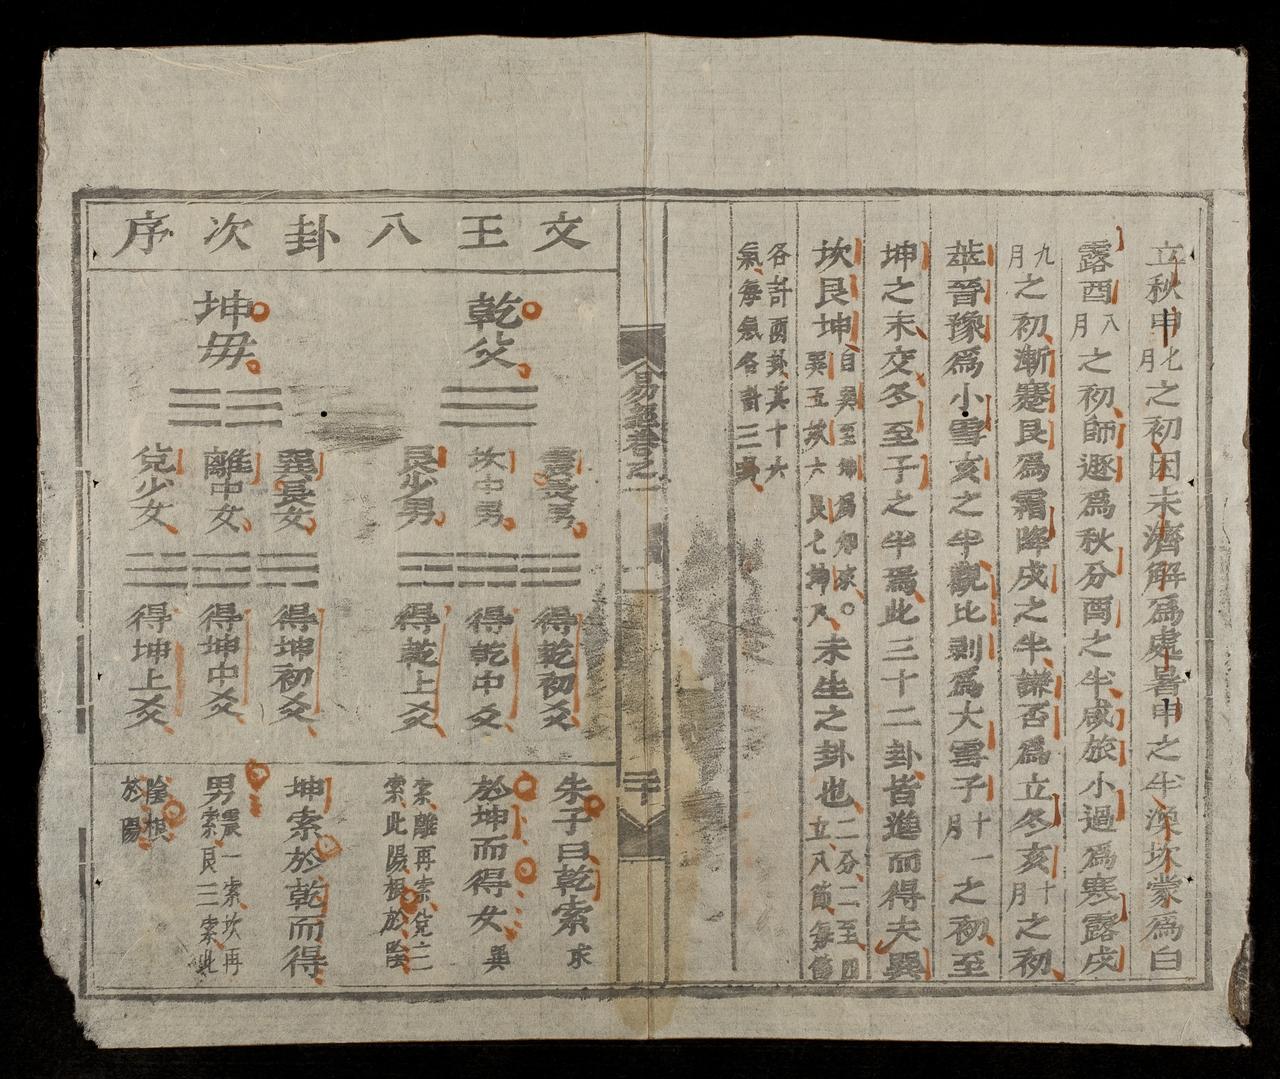 立秋申七月之初困未濟解爲處暑申之半渙坎蒙爲白
露酉八月之初師遯爲秋分酉之半咸旅小過爲寒露戌
九月之初漸蹇艮爲霜降戌之半謙否爲立冬亥十月之初
萃晉豫爲小雪亥之半觀比剥爲大雪子十一月之初至
坤之末交冬至子之半焉此三十二卦皆進而得夫巽
坎艮坤自巽至坤爲卯亥。巽五坎六艮七坤八未生之卦也二分二至四立八節每節
各計酉卦其十六氣每氣各計三卦
易經卷之一
二十
文王八卦次序
乾父
坤毋
震長男
坎中男
艮少男
巽長女
離中女
兌少女
得乾初爻
得乾中爻
得乾上爻
得坤初爻
得坤中爻
得坤上爻
朱子曰乾索求
於坤而得女巽一
索離再索兌三索此陽根於陰
坤索於乾而得
男震一索坎再索艮三索此
陰根於陽